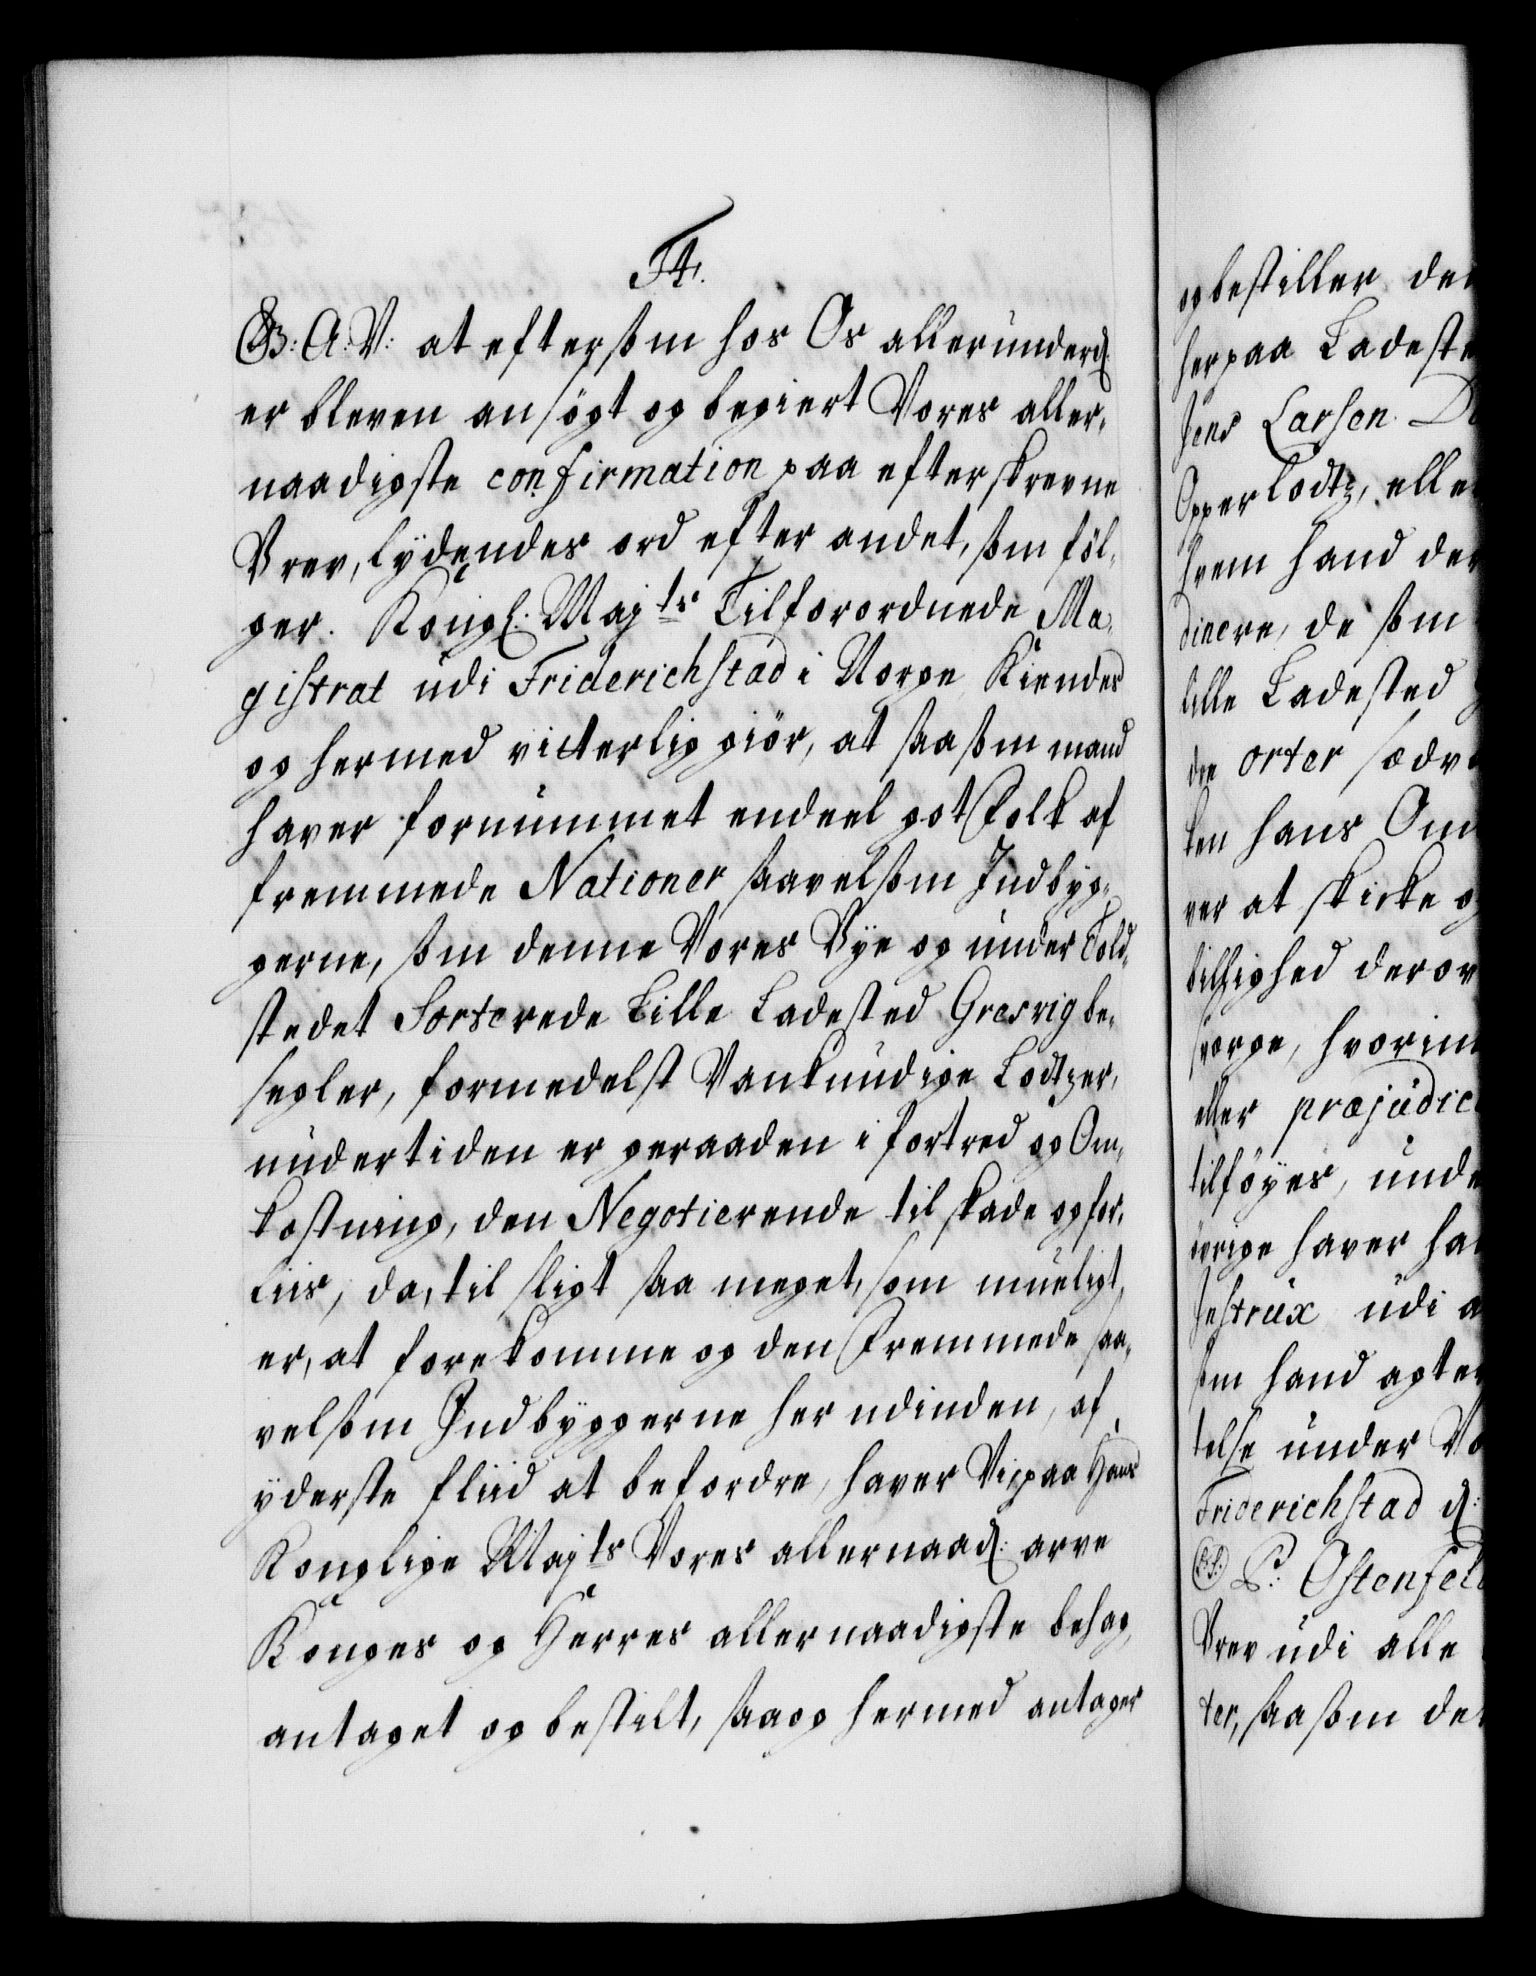 F4.
G.B: A: V: at eftersom hos Os allerunderd:
er bleven ansögt og begiert Vores aller,
naadigste confirmation paa efterskrevne
Brev, lydendes ord efter andet, som föl,
ger. Kongl. Majts Tilforordnede Ma,
gistrat udi Friderichstad i Norge Kiendes
og hermed vitterlig giör, at saasom mand
haver fornummet endeel got Folk af
fremmede Nationer saavelsom Indbyg,
gerne, som denne Vores Bye og under Told,
stedet Sorterede Lille Ladested Gresvig be,
segler, formedelst Vankundige Lodtzer,
undertiden er geraaden i fortred og Om,
kostning, den Negotierende til skade og for,
liis, da, til sligt saa meget, som mueligt
er, at forekomme og den Fremmede saa,
velsom Indbyggerne her udinden, af
yderste fliid at befordre, haver Vi paa Hans
Konglige Majts Vores allernaad: arve
Konges og Herres allernaadigste behag,
antaget og bestilt, saa og hermed antager
og bestiller de
her paa Ladeste
Jens Larsen
Opperlodtz, elle
hvem hand de
dinere, de som
lille Ladested
de orter sædv
ken hans Om
ver at skicke o
billighed derov
sørge, hvorim
eller præjudic
tilföyes, unde
övrige haver ha
Jestrux udi a
som hand agte
telse under Vo
Friderichstad d:
(L.S.) P: Ostenfel
Brev udi alle
ter, saasom de